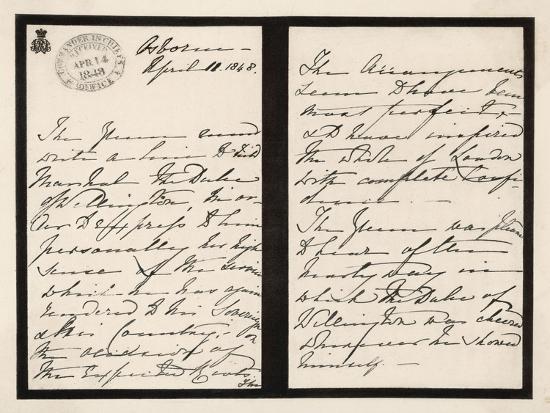 COMMANDER IN CHIEF'S
RECEIVED
APR 14
1848
OFFICE
Osborne –
April 11. 1848.
The Queen
write a line to Field
Marshal The Duke
of Wellington, in or
der to express to him
personally her high
sense of the service
which he has again
rendered to his Sovereign
& this Country, – on
the occasion of
the expected
The
The Arrangements
seem to have been
most perfect, &
to have inspired
the whole of London
with complete Confi
dence. –
The Queen was pleased
to hear of the
way in
which The Duke of
Wellington was cheered
whenever he showed
himself. –